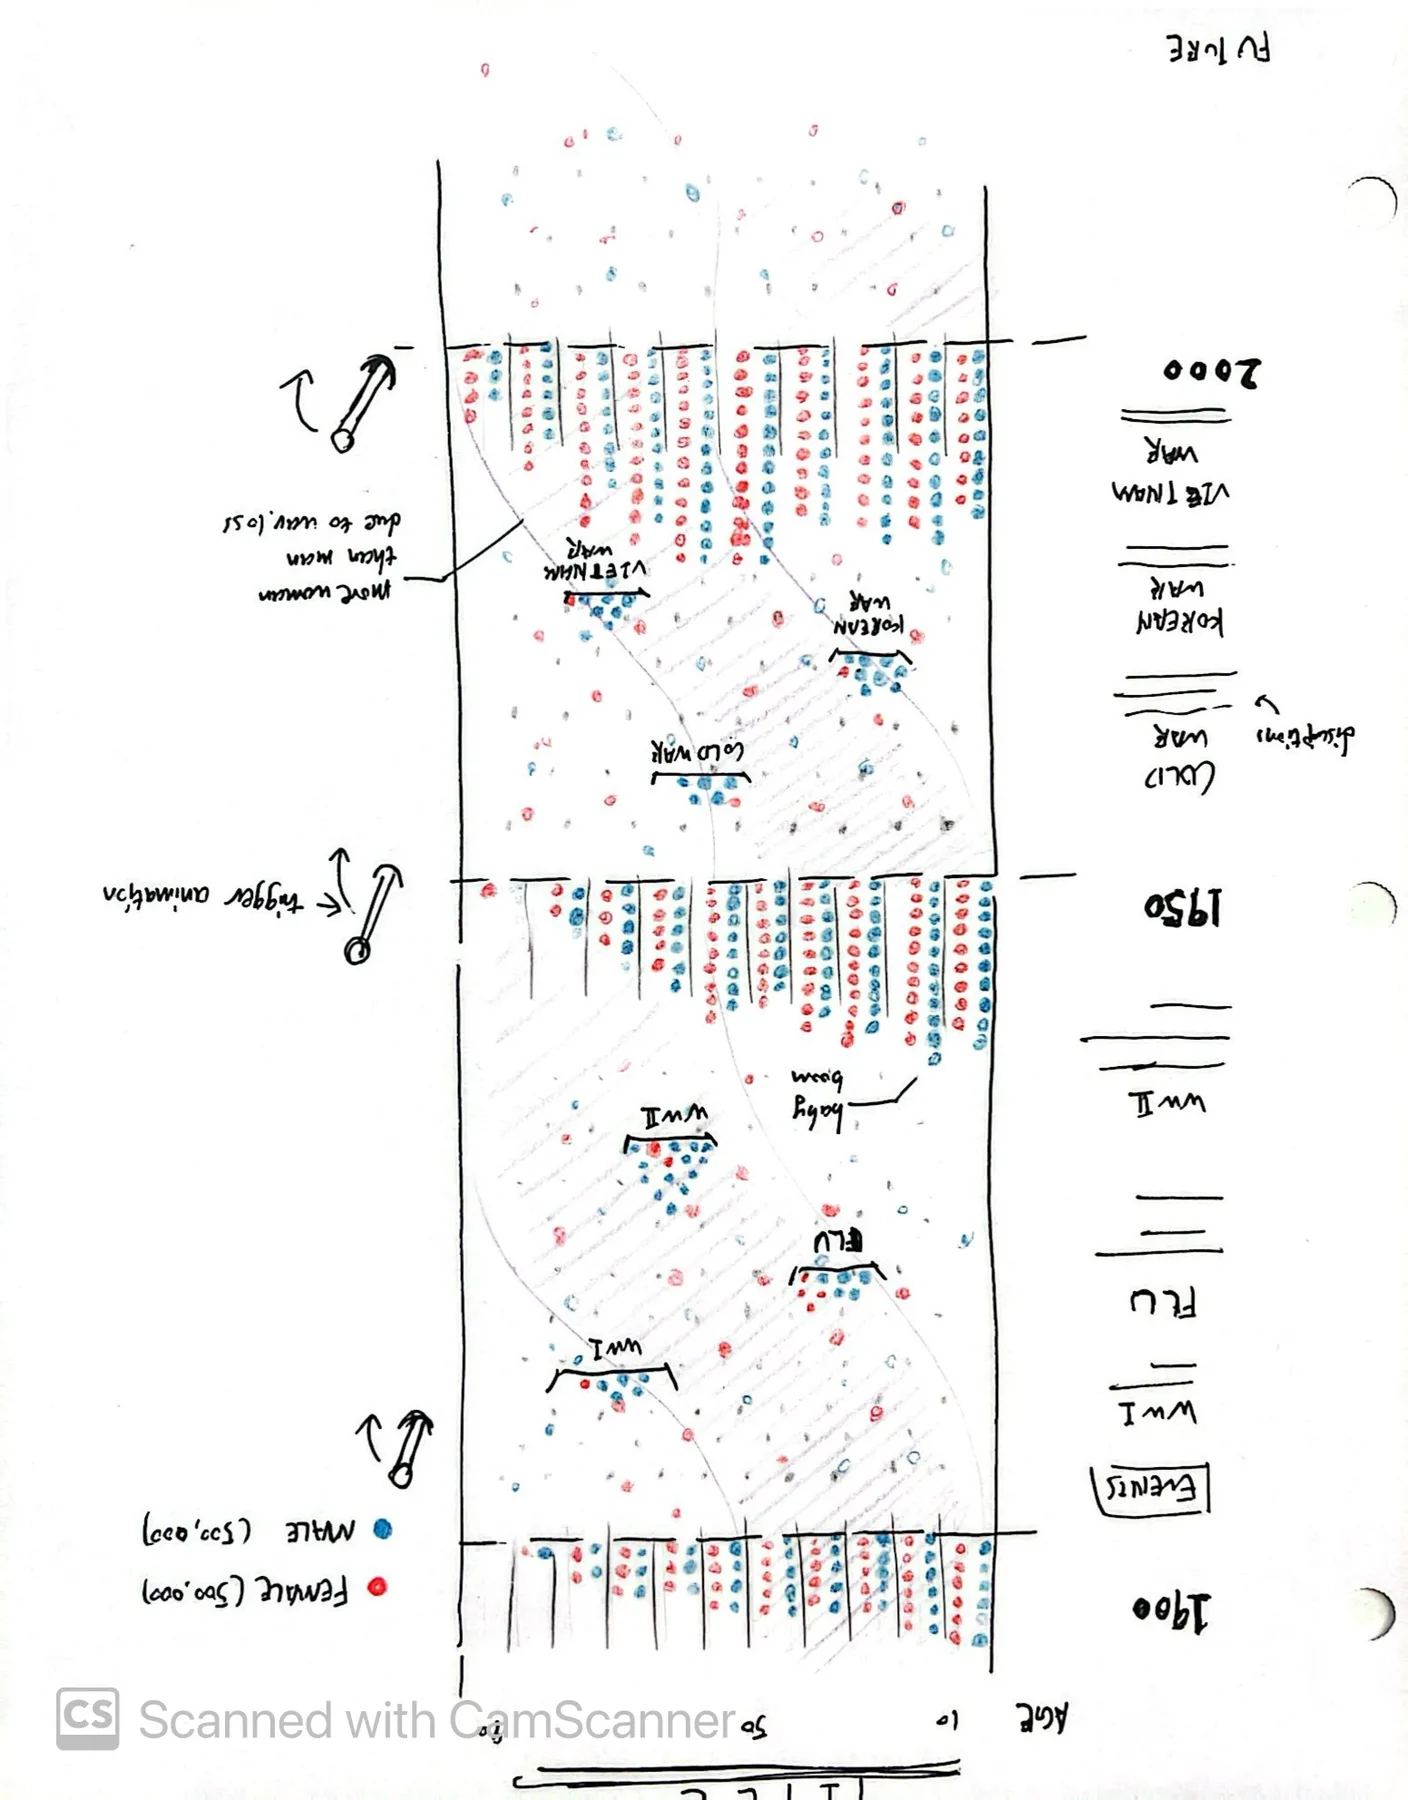 AGE
10
50
1900
FEMALE (500,000)
MALE (500,000)
EVENTS
WW I
WW I
FLU
FLU
WW II
WW II
baby
boom
1950
trigger animation
COLD
WAR
COLD WAR
KOREAN
WAR
KOREAN
WAR
VIETNAM
WAR
VIETNAM
WAR
more women
than men
due to war loss
2000
FUTURE
CS Scanned with CamScanner